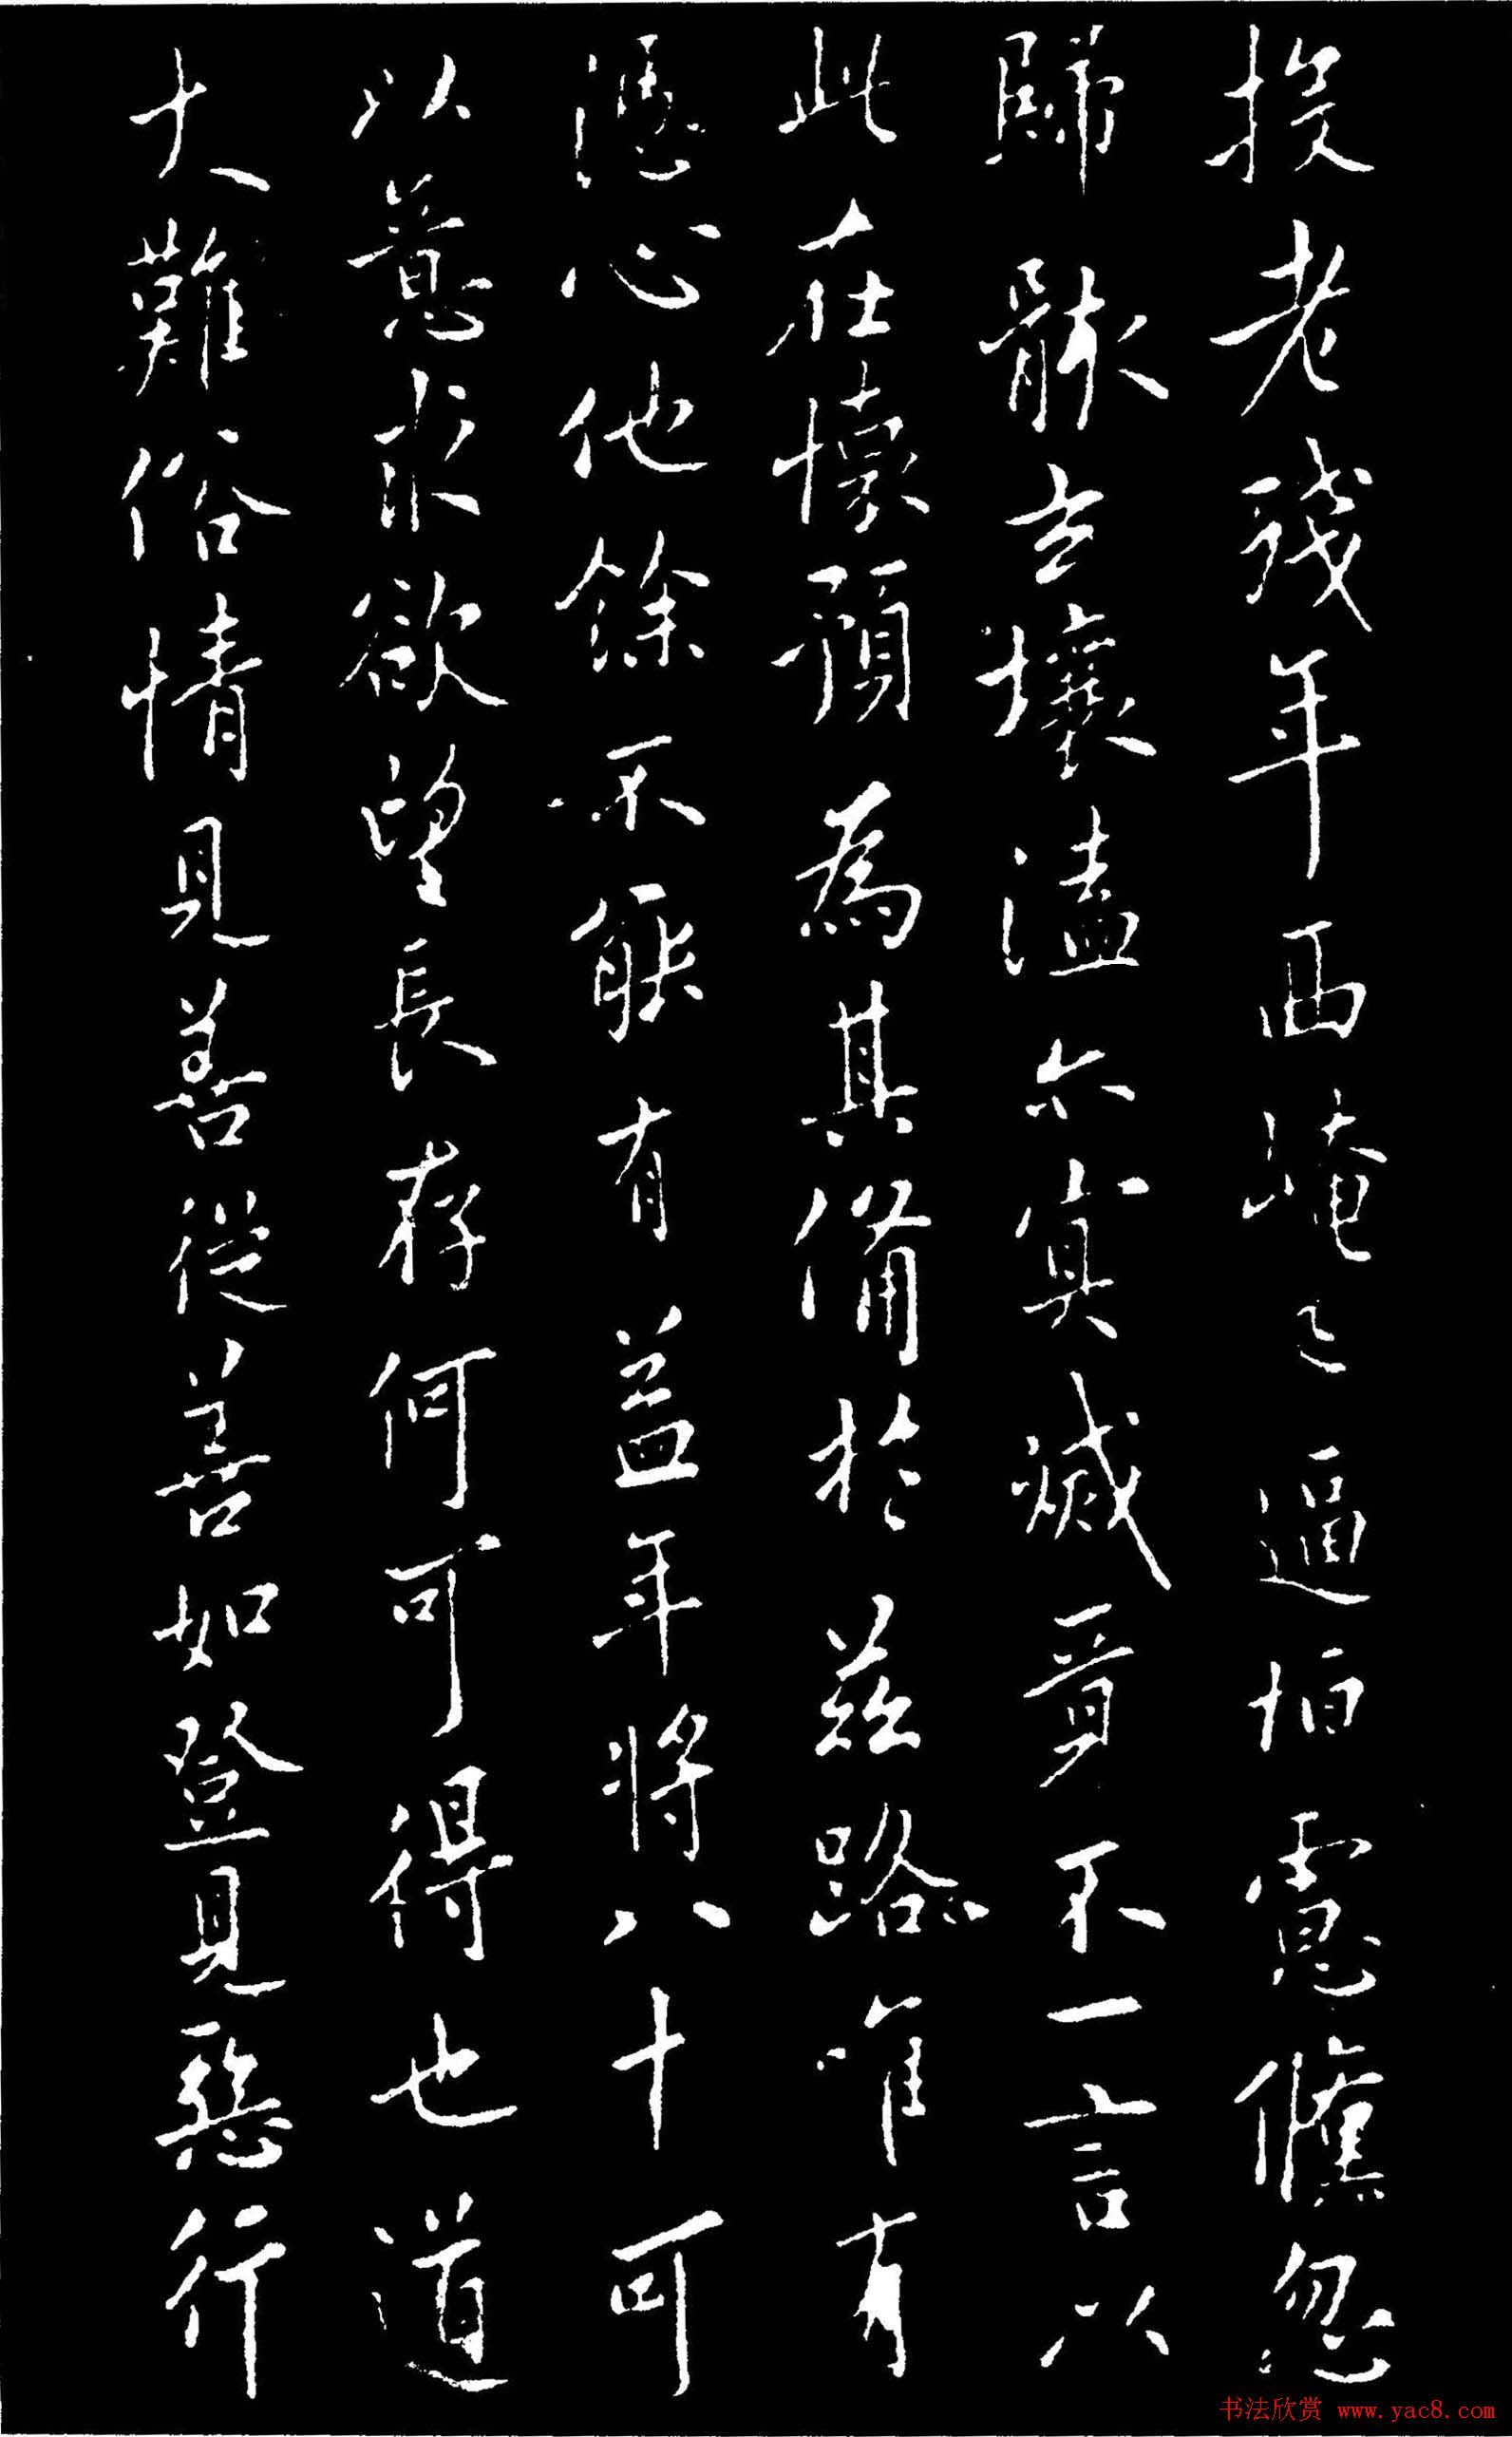 投老殘年西崦之逼恒慮儵忽
歸骸玄壤溘尔冥滅不一言以
此在懷預為其備於茲路唯有
憑心他餘不能有益年將八十可
以意求欲望長存何可得也道
大難俗情見善從善如登見惡行
书法欣赏 www.yac8.com